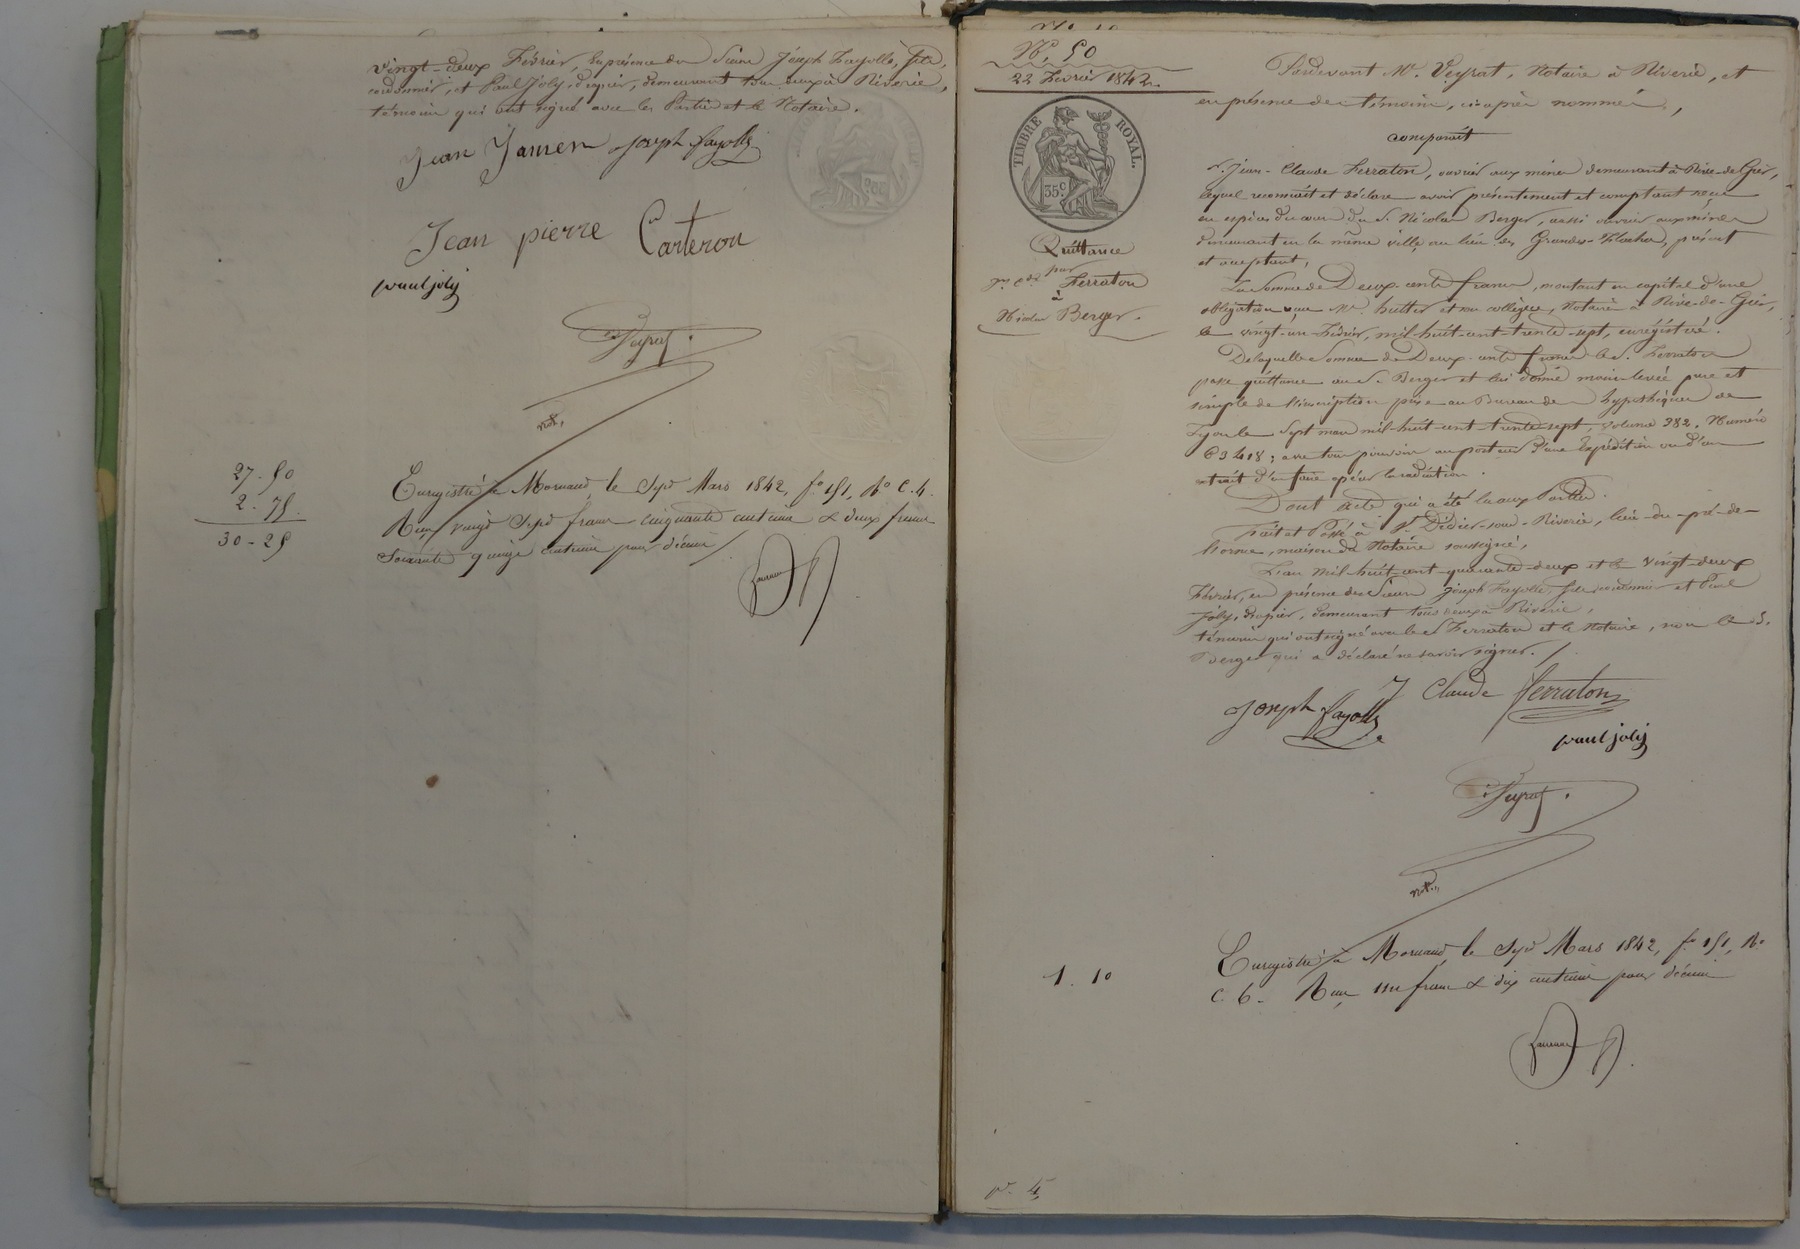 vingt-deux Février, en présence des Sieurs Joseph Fayolle, fils,
cordonnier, et Paul Joly, drapier, demeurant tous deux à Riverie,
témoins qui ont signé avec les Parties et le Notaire.
Jean Jamen Joseph fayolle
Jean pierre Carteron
paul joly
Veyrat.
not.
27-50
2.75.
30-25
Enregistré à Mornand, le Sept Mars 1842, fo 151, Ro C. 4.
Reçu vingt Sept francs cinquante centimes & deux francs
soixante quinze centimes pour décime
No. 50
22 Février 1842.
TIMBRE ROYAL.
35 c.
Quittance
par
Jn Cde Ferraton
à
Nicolas Berger.
Pardevant Me. Veyrat, Notaire à Riverie, et
en présence des témoins, ci-après nommés,
comparait
Sr. Jean-Claude Ferraton, ouvrier aux mines demeurant à Rive-de-Gier,
lequel reconnait et déclare avoir présentement et comptant reçu
en espèces du cours du S. Nicolas Berger, aussi ouvrier aux mines
demeurant en la même ville, au lieu des Grandes-Flaches, présent
et acceptant,
La Somme de Deux-cents francs, montant en capital d'une
obligation vue Me. hutter et son collègue, Notaires à Rive-de-Gier,
le vingt-un Février, mil-huit-cent-trente-sept, enregistré.
De laquelle Somme de Deux-cents francs le S. Ferraton
passe quittance au S. Berger et lui donne main-levée pure et
simple de l'inscription prise au Bureau des hypothèques de
Lyon le Sept mars mil-huit-cent-trente-sept, volume 382, Numéro
; avec tous pouvoirs au porteur d'une Expédition ou d'un
extrait d'en faire opérer la radiation.
Dont Acte qui a été lu aux Parties.
Fait et Passé à St Didier-sous-Riverie, lieu-du-pré-de-
lorme, maison du Notaire soussigné,
L'an mil-huit-cent-quarante-deux et le vingt-deux
Février, en présence des Sieurs Joseph Fayolle, fils cordonnier et Paul
Joly, drapier, demeurant tous deux à Riverie,
témoins qui ont signé avec le S Ferraton et le Notaire, non le S.
Berger qui a déclaré ne savoir signer.
J Claude ferraton
Joseph fayolle
paul joly
Veyrat.
not.
1. 10
Enregistré à Mornand, le Sept Mars 1842, fo 151, Ro
C. 6. Reçu un franc & dix centimes pour décime